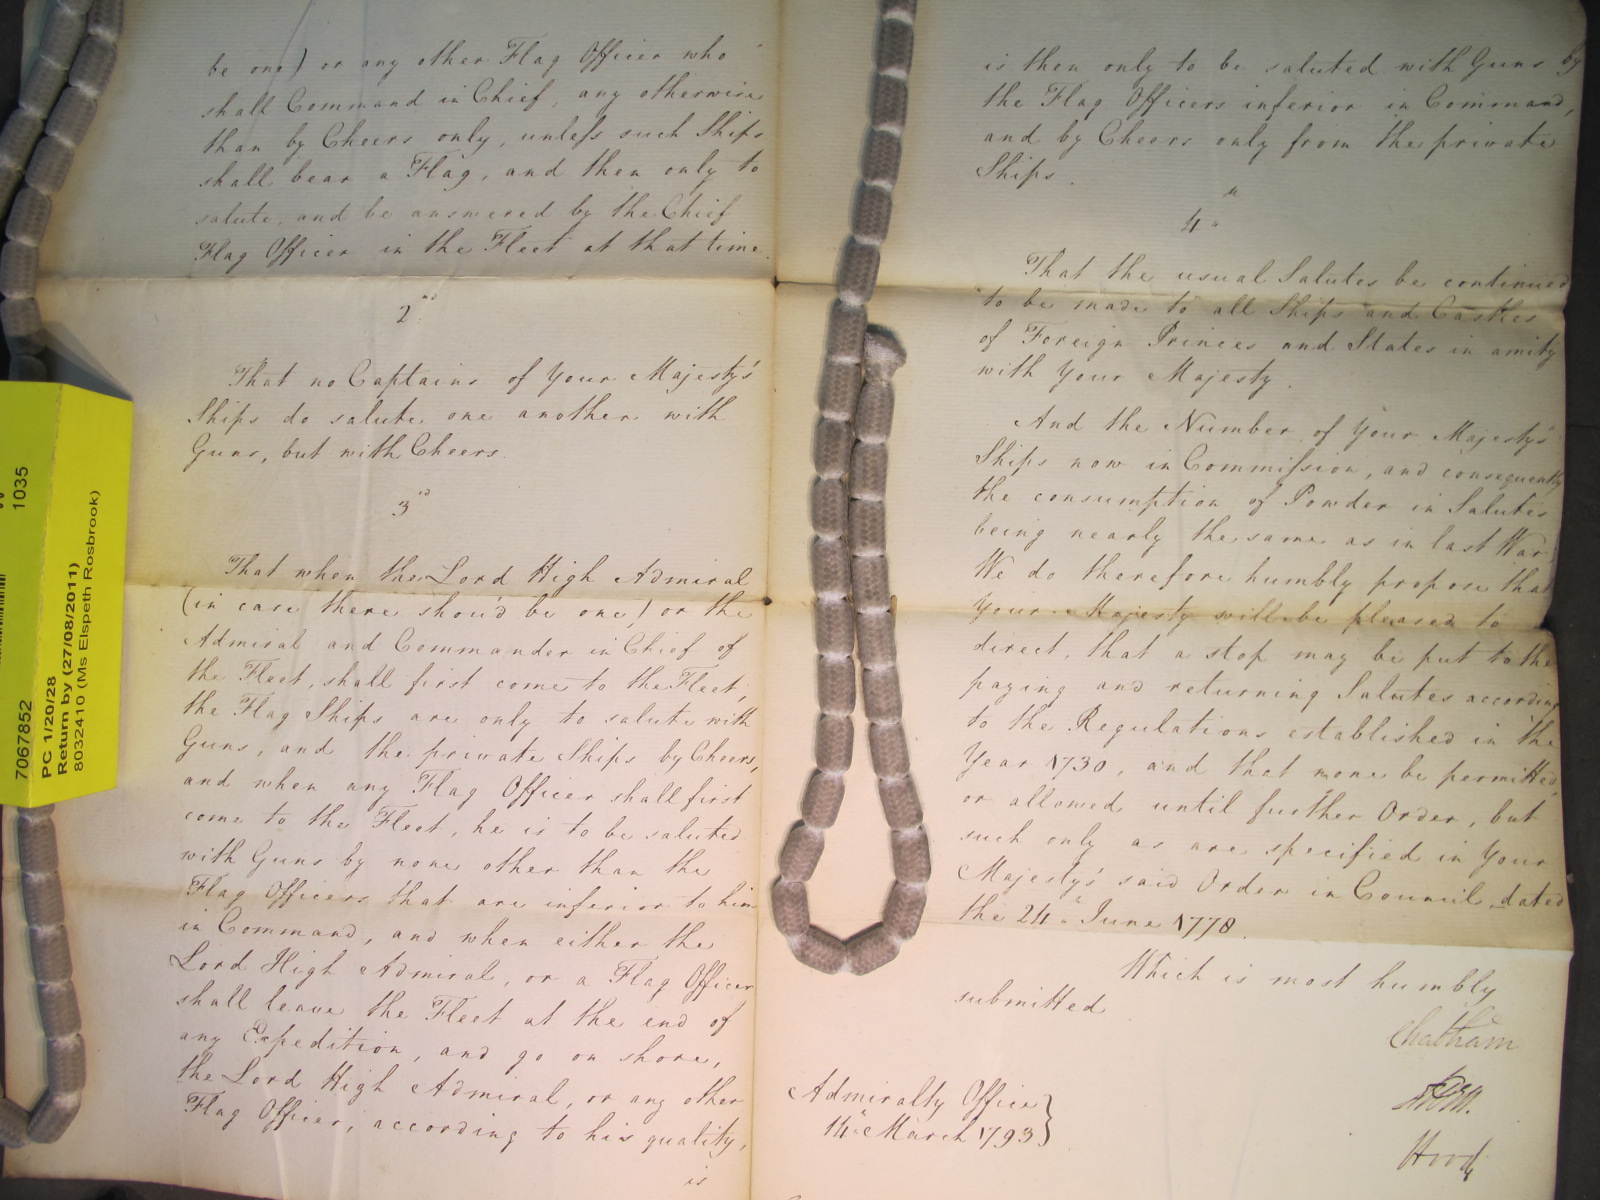 be one) or any other Flag Officer who
shall Command in Chief, any otherwise
than by Cheers only, unless such Ships
shall bear a Flag, and then only to
salute, and be answered by the Chief
Flag Officer in the Fleet at that time.
2nd
That no Captains of Your Majesty's
Ships do salute one another with
Guns, but with Cheers.
3rd
That when the Lord High Admiral
(in case there shou'd be one) or the
Admiral and Commander in Chief of
the Fleet, shall first come to the Fleet,
the Flag Ships are only to salute with
Guns, and the private Ships by Cheers,
and when any Flag Officer shall first
come to the Fleet, he is to be saluted
with Guns by none other than the
Flag Officers that are inferior to him
in Command, and when either the
Lord High Admiral, or a Flag Officer
shall leave the Fleet at the end of
any Expedition, and go on shore,
the Lord High Admiral, or any other
Flag Officer, according to his quality,
is
is then only to be saluted with Guns by
the Flag Officers inferior in Command,
and by Cheers only from the private
Ships.
4th
That the usual Salutes be continued
to be made to all Ships and Castles
of Foreign Princes and States in amity
with Your Majesty.
And the Number of Your Majesty's
Ships now in Commission, and consequently
the consumption of Powder in Salutes
being nearly the same as in last War,
We do therefore humbly propose that
Your Majesty will be pleased to
direct, that a stop may be put to the
paying and returning Salutes according
to the Regulations established in the
Year 1730, and that none be permitted,
or allowed until further Order, but
such only as are specified in Your
Majesty's said Order in Council, dated
the 24th June 1778.
Which is most humbly
submitted
Chatham
Hood
Admiralty Office
14th March 1793
1035
7067852
PC 1/20/28
Return by (27/08/2011)
8032410 (Ms Elspeth Rosbrook)